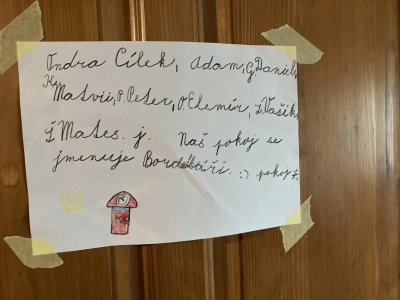 Ondra Cílek, Adam, G. Daniel
H. Matvii, P. Peter, O. Elemír, Ž. Vašík
J. Mates. j. Naš pokoj se
jmenuje Bordeláři. :) pokoj